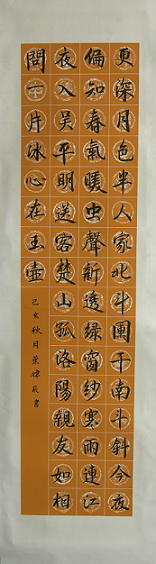 更深月色半人家北斗闌干南斗斜今夜
偏知春氣暖虫聲新透綠窗紗寒雨連江
夜入吳平明送客楚山孤洛陽親友如相
問一片冰心在玉壺
己亥秋月葉書